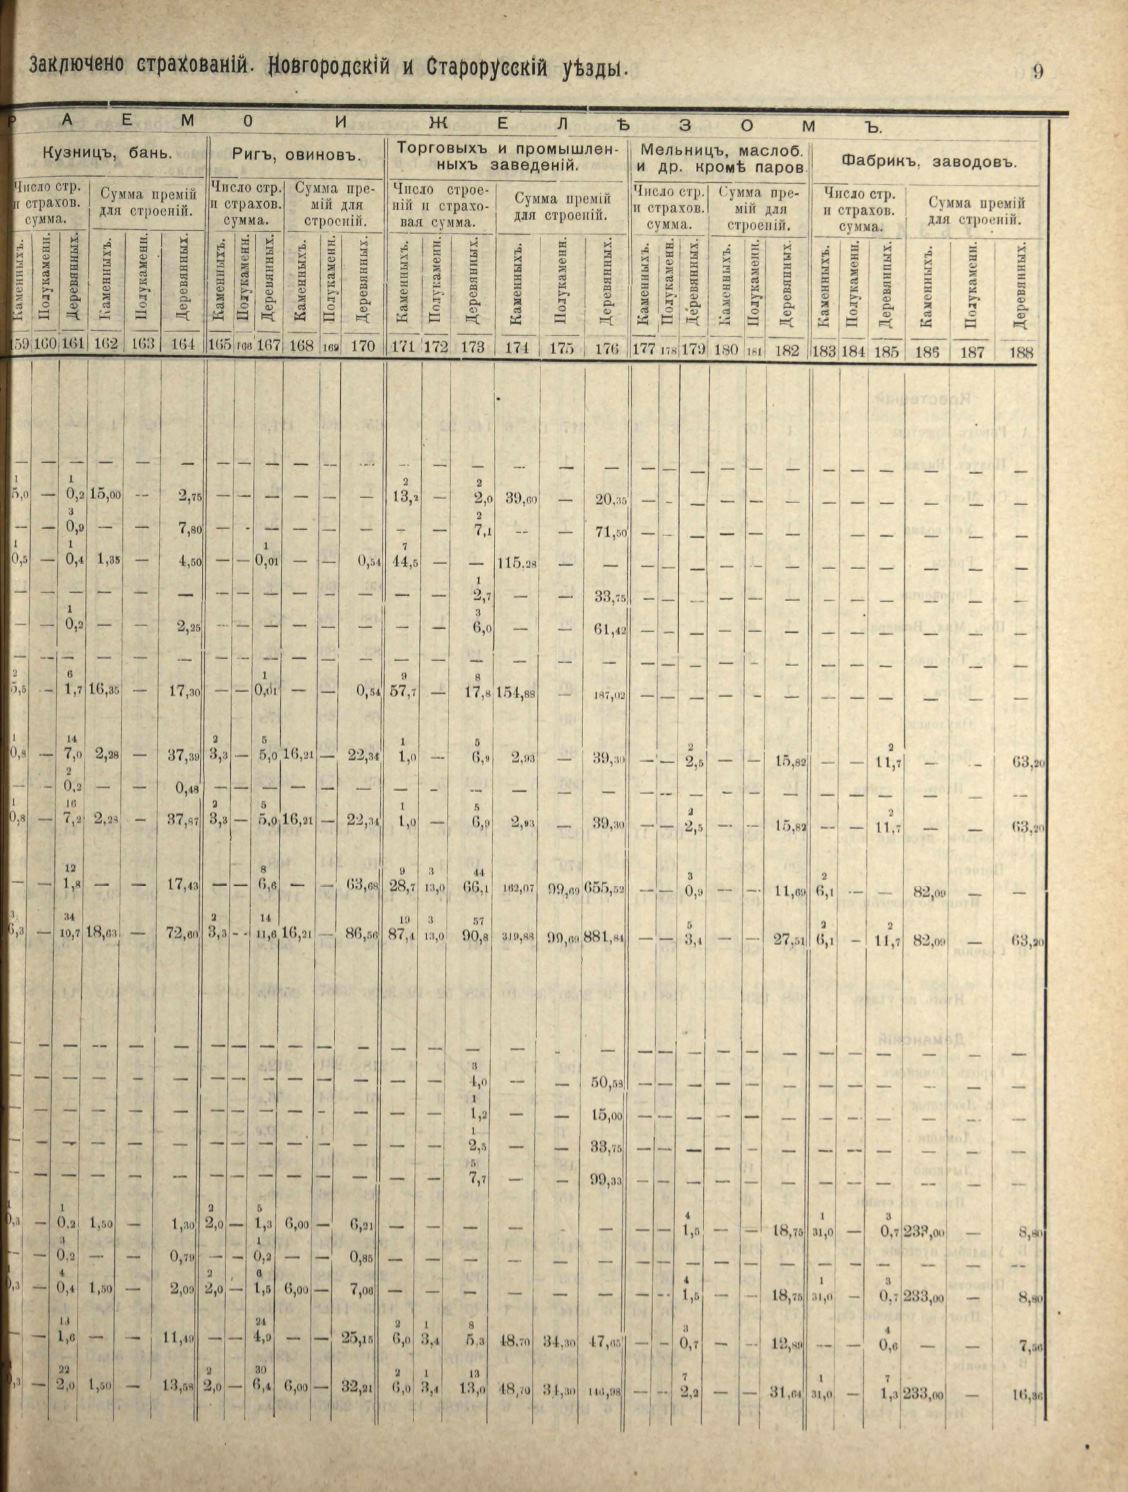 Заключено страхованій. Новгородскій и Старорусскій уѣзды. 9
Р А Е М О И Ж Е Л Ѣ З О М Ъ.
Кузницъ, бань. Ригъ, овиновъ. Торговыхъ и промышлен-ныхъ заведеній. Мельницъ, маслоб. и др. кромѣ паров. Фабрикъ, заводовъ.
Число стр. и страхов. сумма. Сумма премій для строеній. Число стр. и страхов. сумма. Сумма пре-мій для строеній. Число строе-ній и страхо-вая сумма. Сумма премій для строеній. Число стр. и страхов. сумма. Сумма пре-мій для строеній. Число стр. и страхов. сумма. Сумма премій для строеній.
Каменныхъ. Полукаменн. Деревянныхъ. Каменныхъ. Полукаменн. Деревянныхъ. Каменныхъ. Полукаменн. Деревянныхъ. Каменныхъ. Полукаменн. Деревянныхъ. Каменныхъ. Полукаменн. Деревянныхъ. Каменныхъ. Полукаменн. Деревянныхъ. Каменныхъ. Полукаменн. Деревянныхъ. Каменныхъ. Полукаменн. Деревянныхъ. Каменныхъ. Полукаменн. Деревянныхъ. Каменныхъ. Полукаменн. Деревянныхъ.
159 160 161 162 163 164 165 166 167 168 169 170 171 172 173 174 175 176 177 178 179 180 181 182 183 184 185 186 187 188
— — — — — — — — — — — — — — — — — — — — — — — — — — — — — —
1 1 2 2
5,0 — 0,2 15,00 — 2,75 — — — — — — 13,2 — 2,0 39,60 — 20,35 — — — — — — — — — — — —
3 2
— — 0,9 — — 7,80 — — — — — — — — 7,1 — — 71,50 — — — — — — — — — — — —
1 1 1 7
0,5 — 0,4 1,35 — 4,50 — — 0,01 — — 0,54 44,5 — — 115,28 — — — — — — — — — — — — — —
1
— — — — — — — — — — — — — — 2,7 — — 33,75 — — — — — — — — — — — —
1 3
— — 0,2 — — 2,25 — — — — — — — — 6,0 — — 61,42 — — — — — — — — — — — —
— — — — — — — — — — — — — — — — — — — — — — — — — — — — — —
2 6 1 9 8
5,5 — 1,7 16,35 — 17,30 — — 0,01 — — 0,54 57,7 — 17,8 154,88 — 187,02 — — — — — — — — — — — —
1 14 2 5 1 5 2 2
0,8 — 7,0 2,28 — 37,39 3,3 — 5,0 16,21 — 22,34 1,0 — 6,9 2,93 — 39,30 — — 2,5 — — 15,82 — — 11,7 — — 63,20
2
— — 0,2 — — 0,48 — — — — — — — — — — — — — — — — — — — — — — — —
1 16 2 5 1 5 2 2
0,8 — 7,2 2,28 — 37,87 3,3 — 5,0 16,21 — 22,34 1,0 — 6,9 2,93 — 39,30 — — 2,5 — — 15,82 — — 11,7 — — 63,20
12 8 9 3 44 3 2
— — 1,8 — — 17,43 — — 6,6 — — 63,68 28,7 13,0 66,1 162,07 99,69 655,52 — — 0,9 — — 11,69 6,1 — — 82,09 — —
3 34 2 14 19 3 57 5 2 2
6,3 — 10,7 18,63 — 72,60 3,3 — 11,6 16,21 — 86,56 87,4 13,0 90,8 319,88 99,69 881,84 — — 3,4 — — 27,51 6,1 — 11,7 82,09 — 63,20
— — — — — — — — — — — — — — — — — — — — — — — — — — — — — —
3
— — — — — — — — — — — — — — 4,0 — — 50,58 — — — — — — — — — — — —
1
— — — — — — — — — — — — — — 1,2 — — 15,00 — — — — — — — — — — — —
1
— — — — — — — — — — — — — — 2,5 — — 33,75 — — — — — — — — — — — —
5
— — — — — — — — — — — — — — 7,7 — — 99,33 — — — — — — — — — — — —
1 1 2 5 4 1 3
0,3 — 0,2 1,50 — 1,30 2,0 — 1,3 6,00 — 6,21 — — — — — — — — 1,5 — — 18,75 31,0 — 0,7 233,00 — 8,80
3 1
— — 0,2 — — 0,79 — — 0,2 — — 0,85 — — — — — — — — — — — — — — — — — —
4 2 6 4 1 3
0,3 — 0,4 1,50 — 2,09 2,0 — 1,5 6,00 — 7,06 — — — — — — — — 1,5 — — 18,75 31,0 — 0,7 233,00 — 8,80
18 24 2 1 8 3 4
— — 1,6 — — 11,49 — — 4,9 — — 25,15 6,0 3,4 5,3 48,70 34,30 47,65 — — 0,7 — — 12,89 — — 0,6 — — 7,56
22 2 30 2 1 13 7 1 7
0,3 — 2,0 1,50 — 13,58 2,0 — 6,4 6,00 — 32,21 6,0 3,4 13,0 48,70 34,30 146,98 — — 2,2 — — 31,64 31,0 — 1,3 233,00 — 16,36